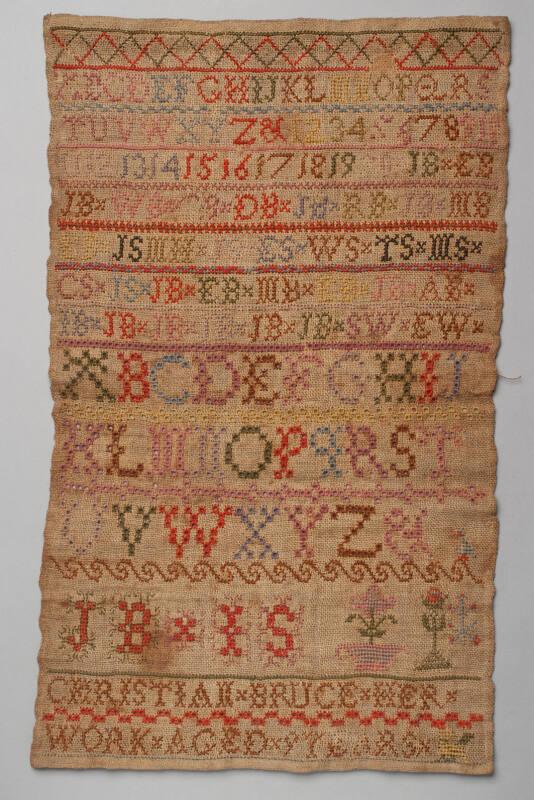 ABCDEFGHIJKLMNOPQRS
TUVWXYZ& 1234 5 6 78
13 14 15 16 17 18 19 JB × EB
JB × × DB × × MB
JS MH × ES × WS × TS × MS ×
CS × JS × JB × EB × MB × EB × × AB ×
JB × JB × JB × JB × SW × EW ×
ABCDEFGHIJ
KLMNOPQRST
UVWXYZ&
JB × IS
CHRISTIAN × BRUCE × HER ×
WORK × AGED × 9 YEARS ×